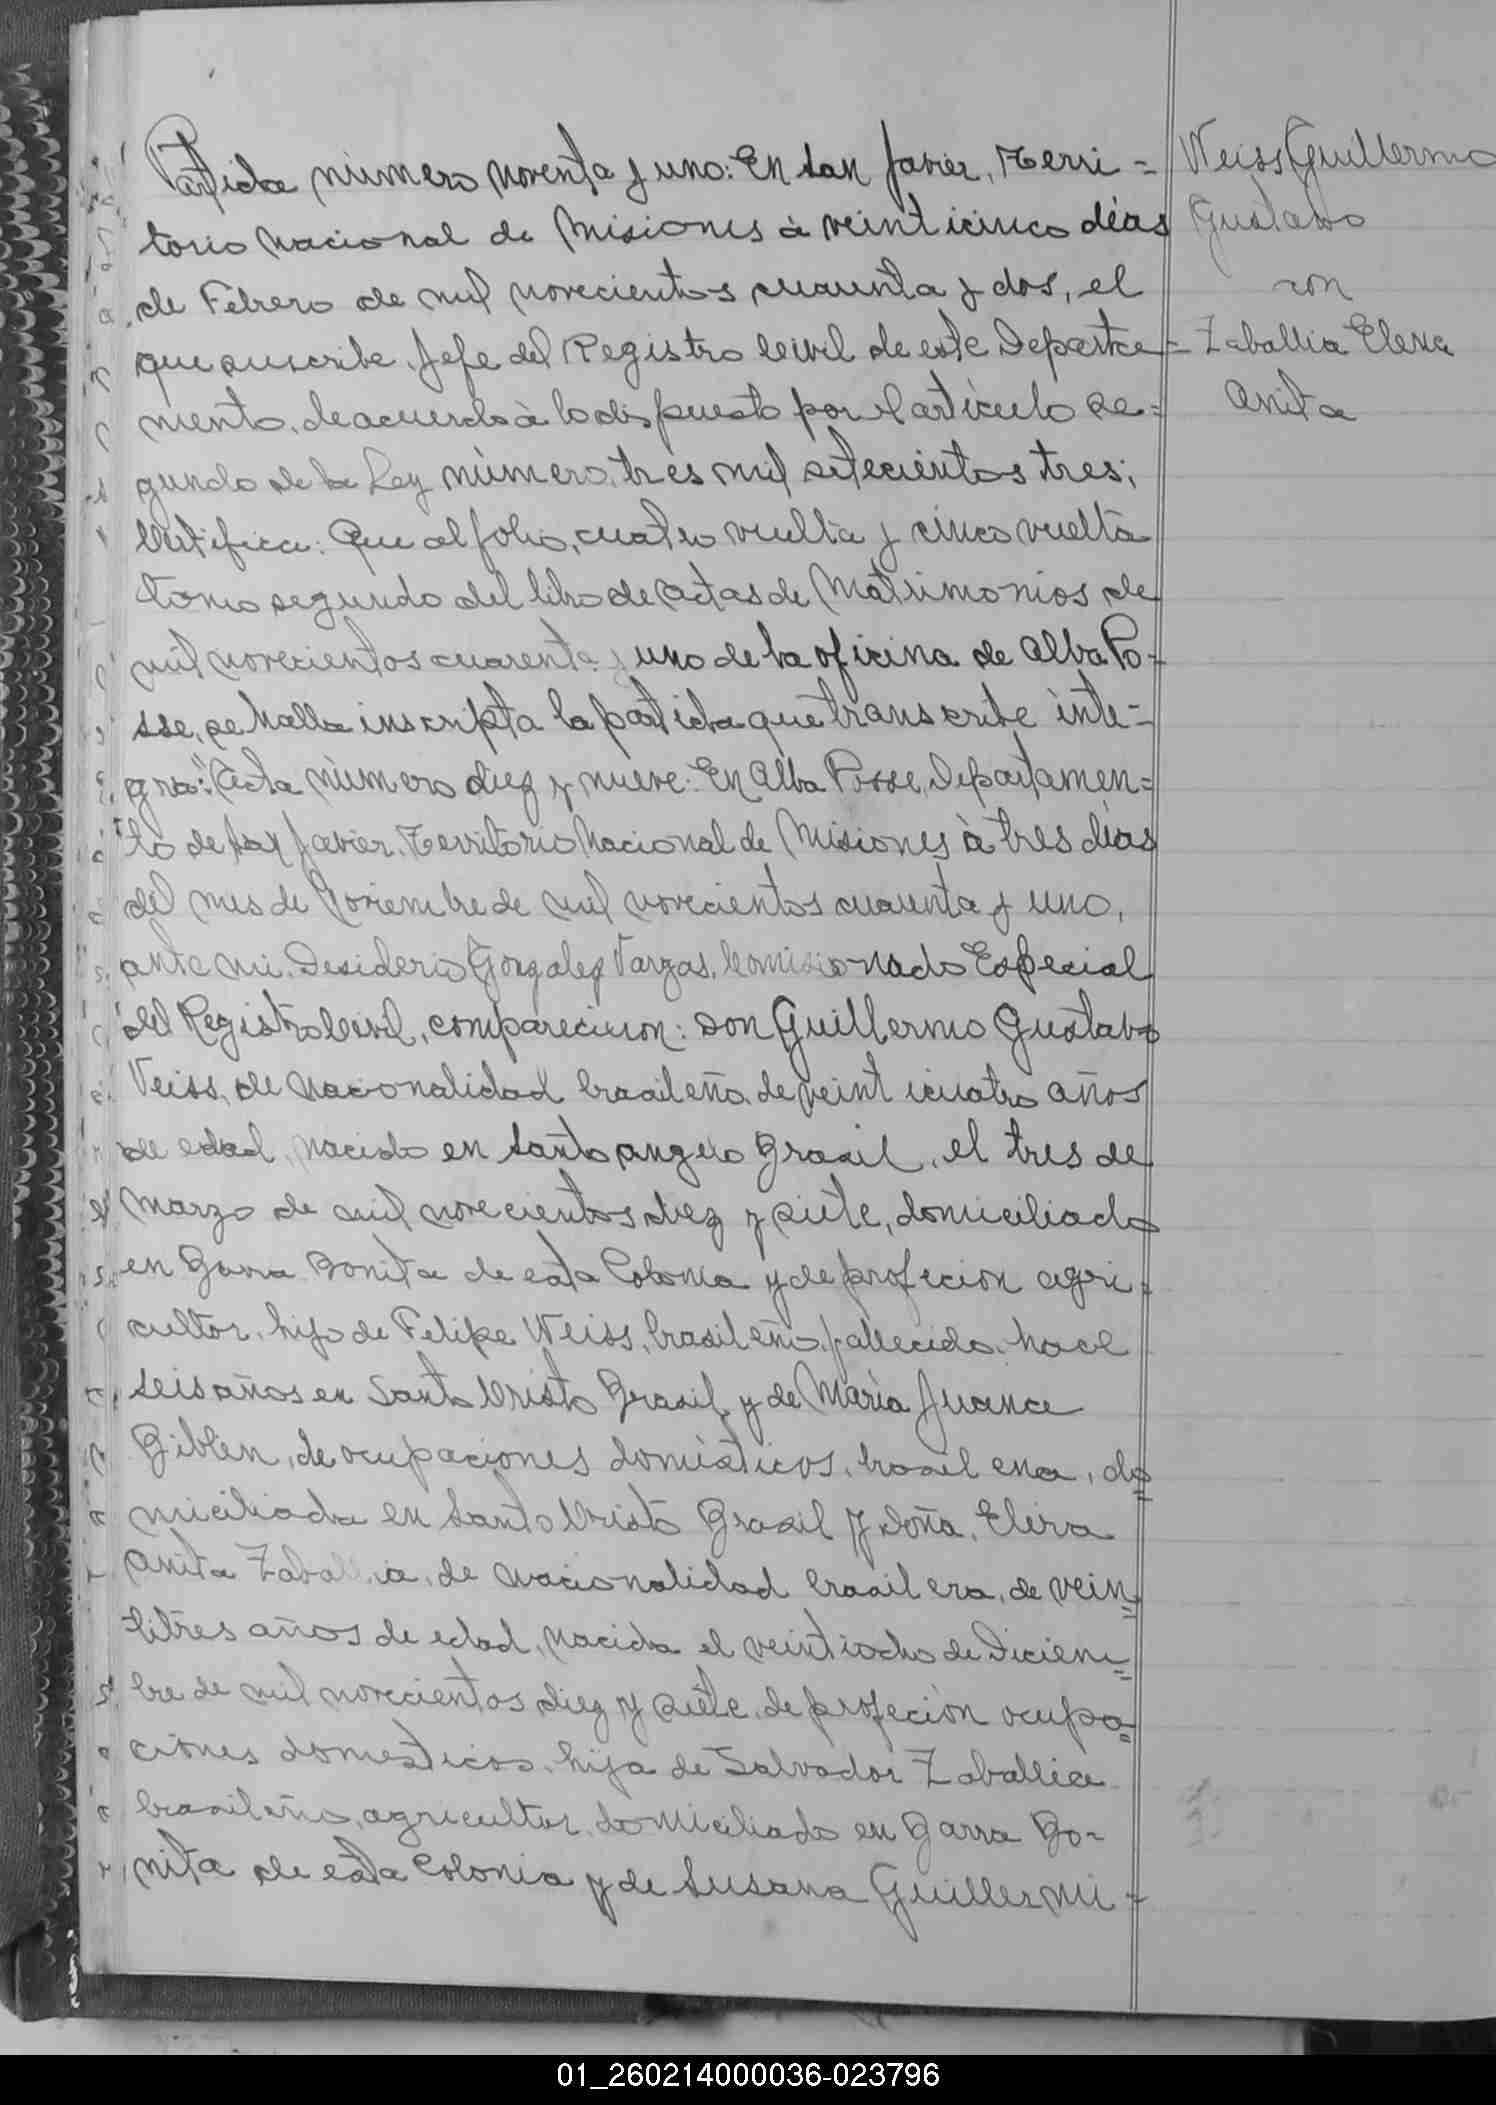 Partida número noventa y uno: En San Javier, Terri=
torio Nacional de Misiones à veinticinco días
de Febrero de mil novecientos cuarenta y dos, el
que suscribe, Jefe del Registro Civil de este Departa=
mento, de acuerdo à lo dispuesto por el artículo se=
gundo de la Ley número tres mil setecientos tres;
Certifica: Que al folio, cuatro vuelta y cinco vuelta
tomo segundo del libro de actas de Matrimonios de
mil novecientos cuarenta y uno de la oficina de Alba Po=
sse, se halla inscripta la partida que transcribe inte=
gra: "Acta número diez y nueve: En Alba Posse, Departamen=
to de San Javier, Territorio Nacional de Misiones à tres días
del mes de Noviembre de mil novecientos cuarenta y uno,
ante mi, Desiderio Gonzalez Vargas, Comisionado Especial
del Registro Civil, comparecieron: Don Guillermo Gustavo
Veiss, de nacionalidad brasileña, de veinticuatro años
de edad, nacido en Santo Angelo Brasil, el tres de
Marzo de mil novecientos diez y siete, domiciliado
en Barra Bonita de esta Colonia y de profeción agri=
cultor, hijo de Felipe Weiss, brasileño, fallecido, hace
seis años en Santo Cristo Brasil, y de María Juana
Giblen, de ocupaciones domésticos, brasilena, do
miciliada en Santo Cristo Brasil y doña, Elera
Anita Zaballia, de nacionalidad brasilera, de vein
titres años de edad, nacida el veintiocho de Diciem
bre de mil novecientos diez y siete, de profeción ocupa
ciones domesticos, hija de Salvador Zaballia
brasileño, agricultor, domiciliado en Barra Bo=
nita de esta Colonia y de Susana Guillermi=
Weiss Guillermo
Gustavo
con
Zaballia Elena
Anita
01_260214000036-023796